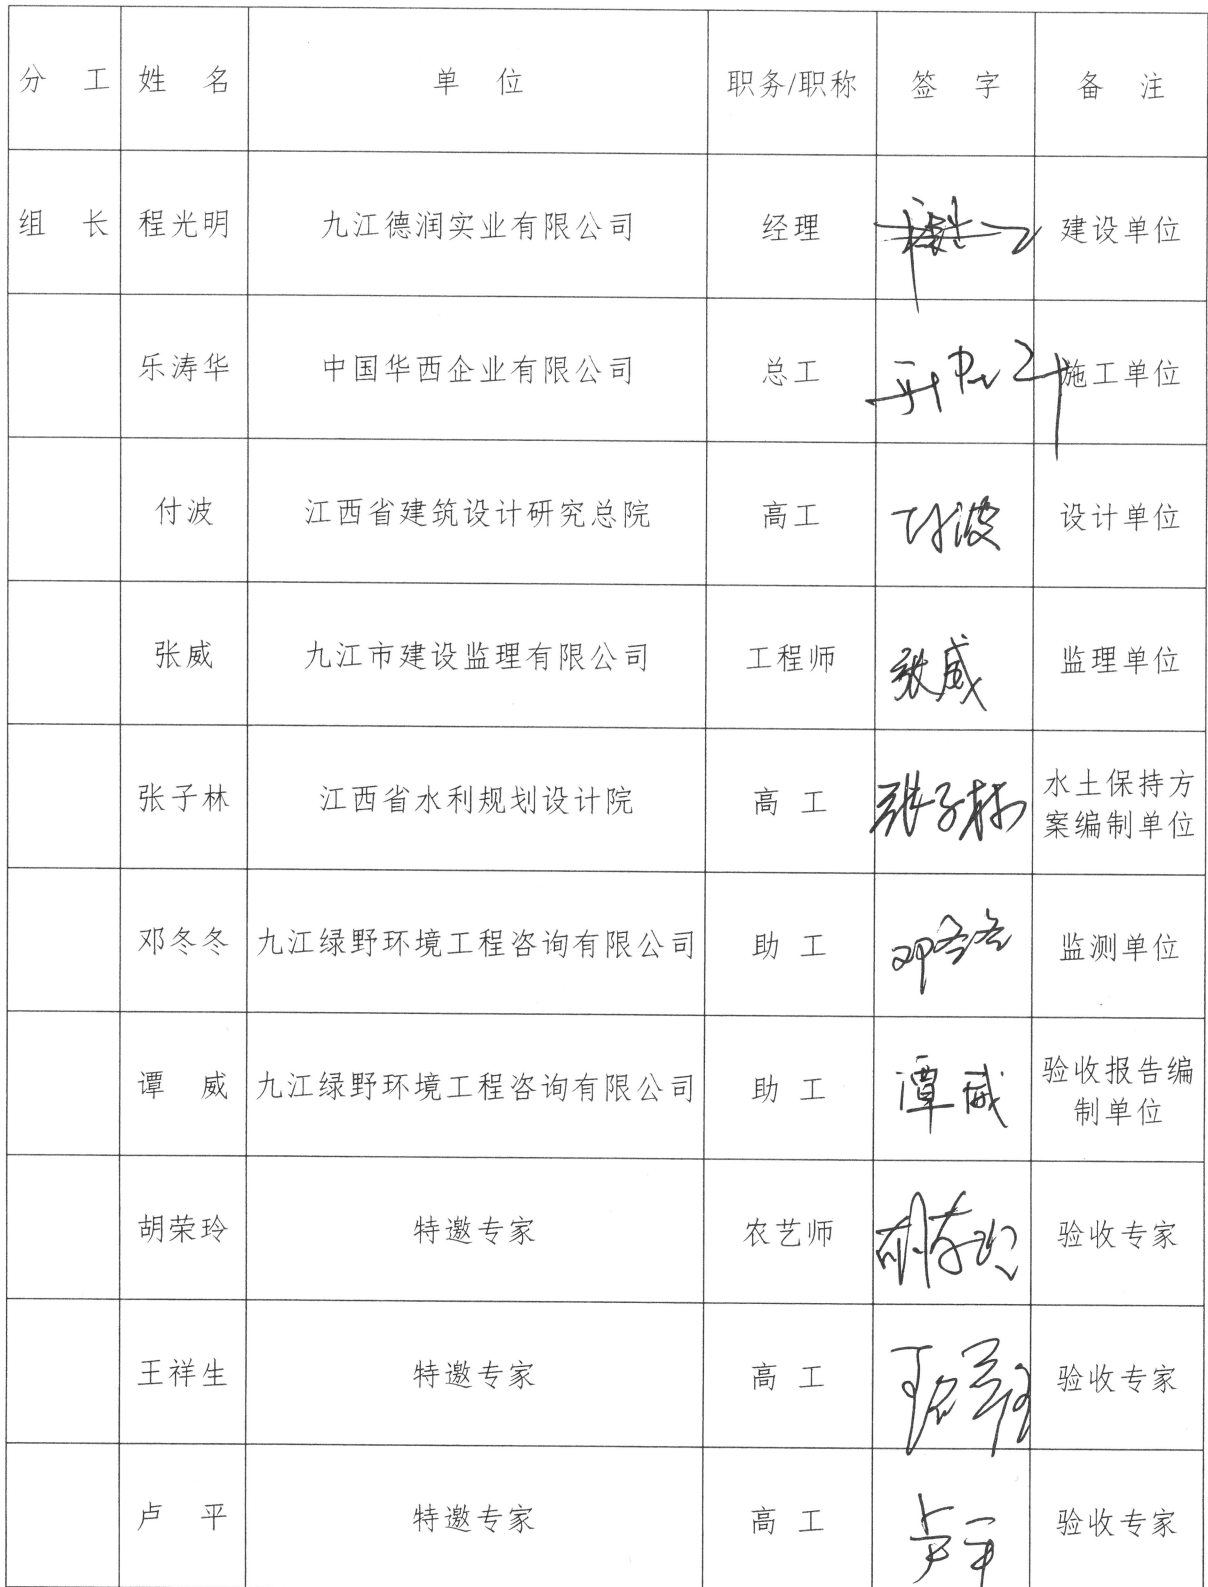 分 工 姓 名 单 位 职务/职称 签 字 备 注
组 长 程光明 九江德润实业有限公司 经理 建设单位
乐涛华 中国华西企业有限公司 总工 施工单位
付波 江西省建筑设计研究总院 高工 付波 设计单位
张威 九江市建设监理有限公司 工程师 张威 监理单位
张子林 江西省水利规划设计院 高 工 张子林 水土保持方
案编制单位
邓冬冬 九江绿野环境工程咨询有限公司 助 工 邓冬冬 监测单位
谭 威 九江绿野环境工程咨询有限公司 助 工 谭威 验收报告编
制单位
胡荣玲 特邀专家 农艺师 胡荣玲 验收专家
王祥生 特邀专家 高 工 验收专家
卢 平 特邀专家 高 工 卢平 验收专家